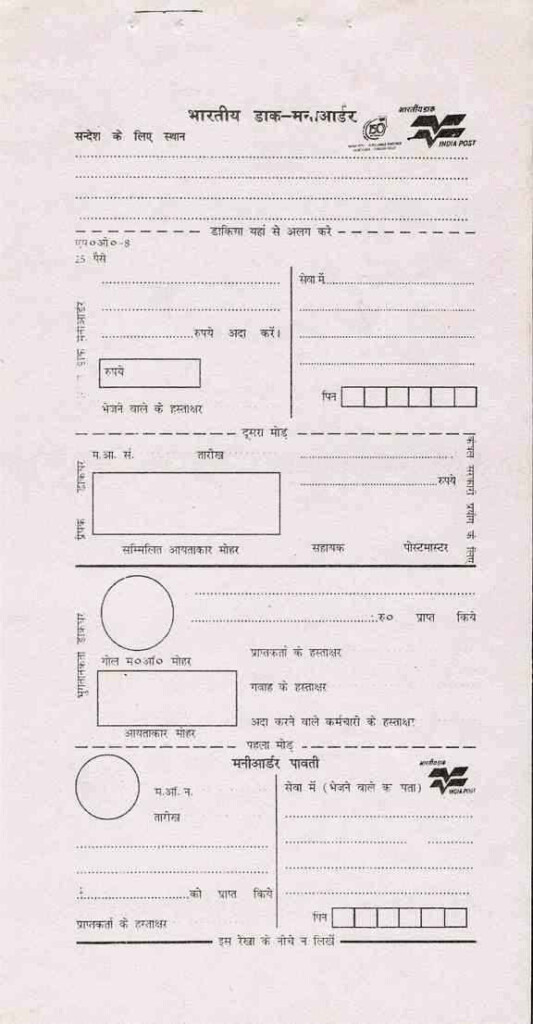 भारतीय डाक-मनीआर्डर
भारतीय डाक
INDIA POST
150
सन्देश के लिए स्थान
डाकिया यहां से अलग करे
एम०ओ०-8
25 पैसे
डाक मनीआर्डर
सेवा में
रुपये अदा करें।
रुपये
पिन
भेजने वाले के हस्ताक्षर
दूसरा मोड़
प्रेषक डाकघर
म.आ. सं. तारीख
रुपये
केवल सरकारी प्रयोग के लिए
सम्मिलित आयताकार मोहर सहायक पोस्टमास्टर
भुगतानकर्ता डाकघर
रु० प्राप्त किये
गोल म०ऑ० मोहर
प्राप्तकर्ता के हस्ताक्षर
गवाह के हस्ताक्षर
अदा करने वाले कर्मचारी के हस्ताक्षर
आयताकार मोहर
पहला मोड़
मनीआर्डर पावती
भारतीय डाक
INDIA POST
म.ऑ. न.
तारीख
सेवा में (भेजने वाले क पता)
को प्राप्त किये
प्राप्तकर्ता के हस्ताक्षर
पिन
इस रेखा के नीचे न लिखें